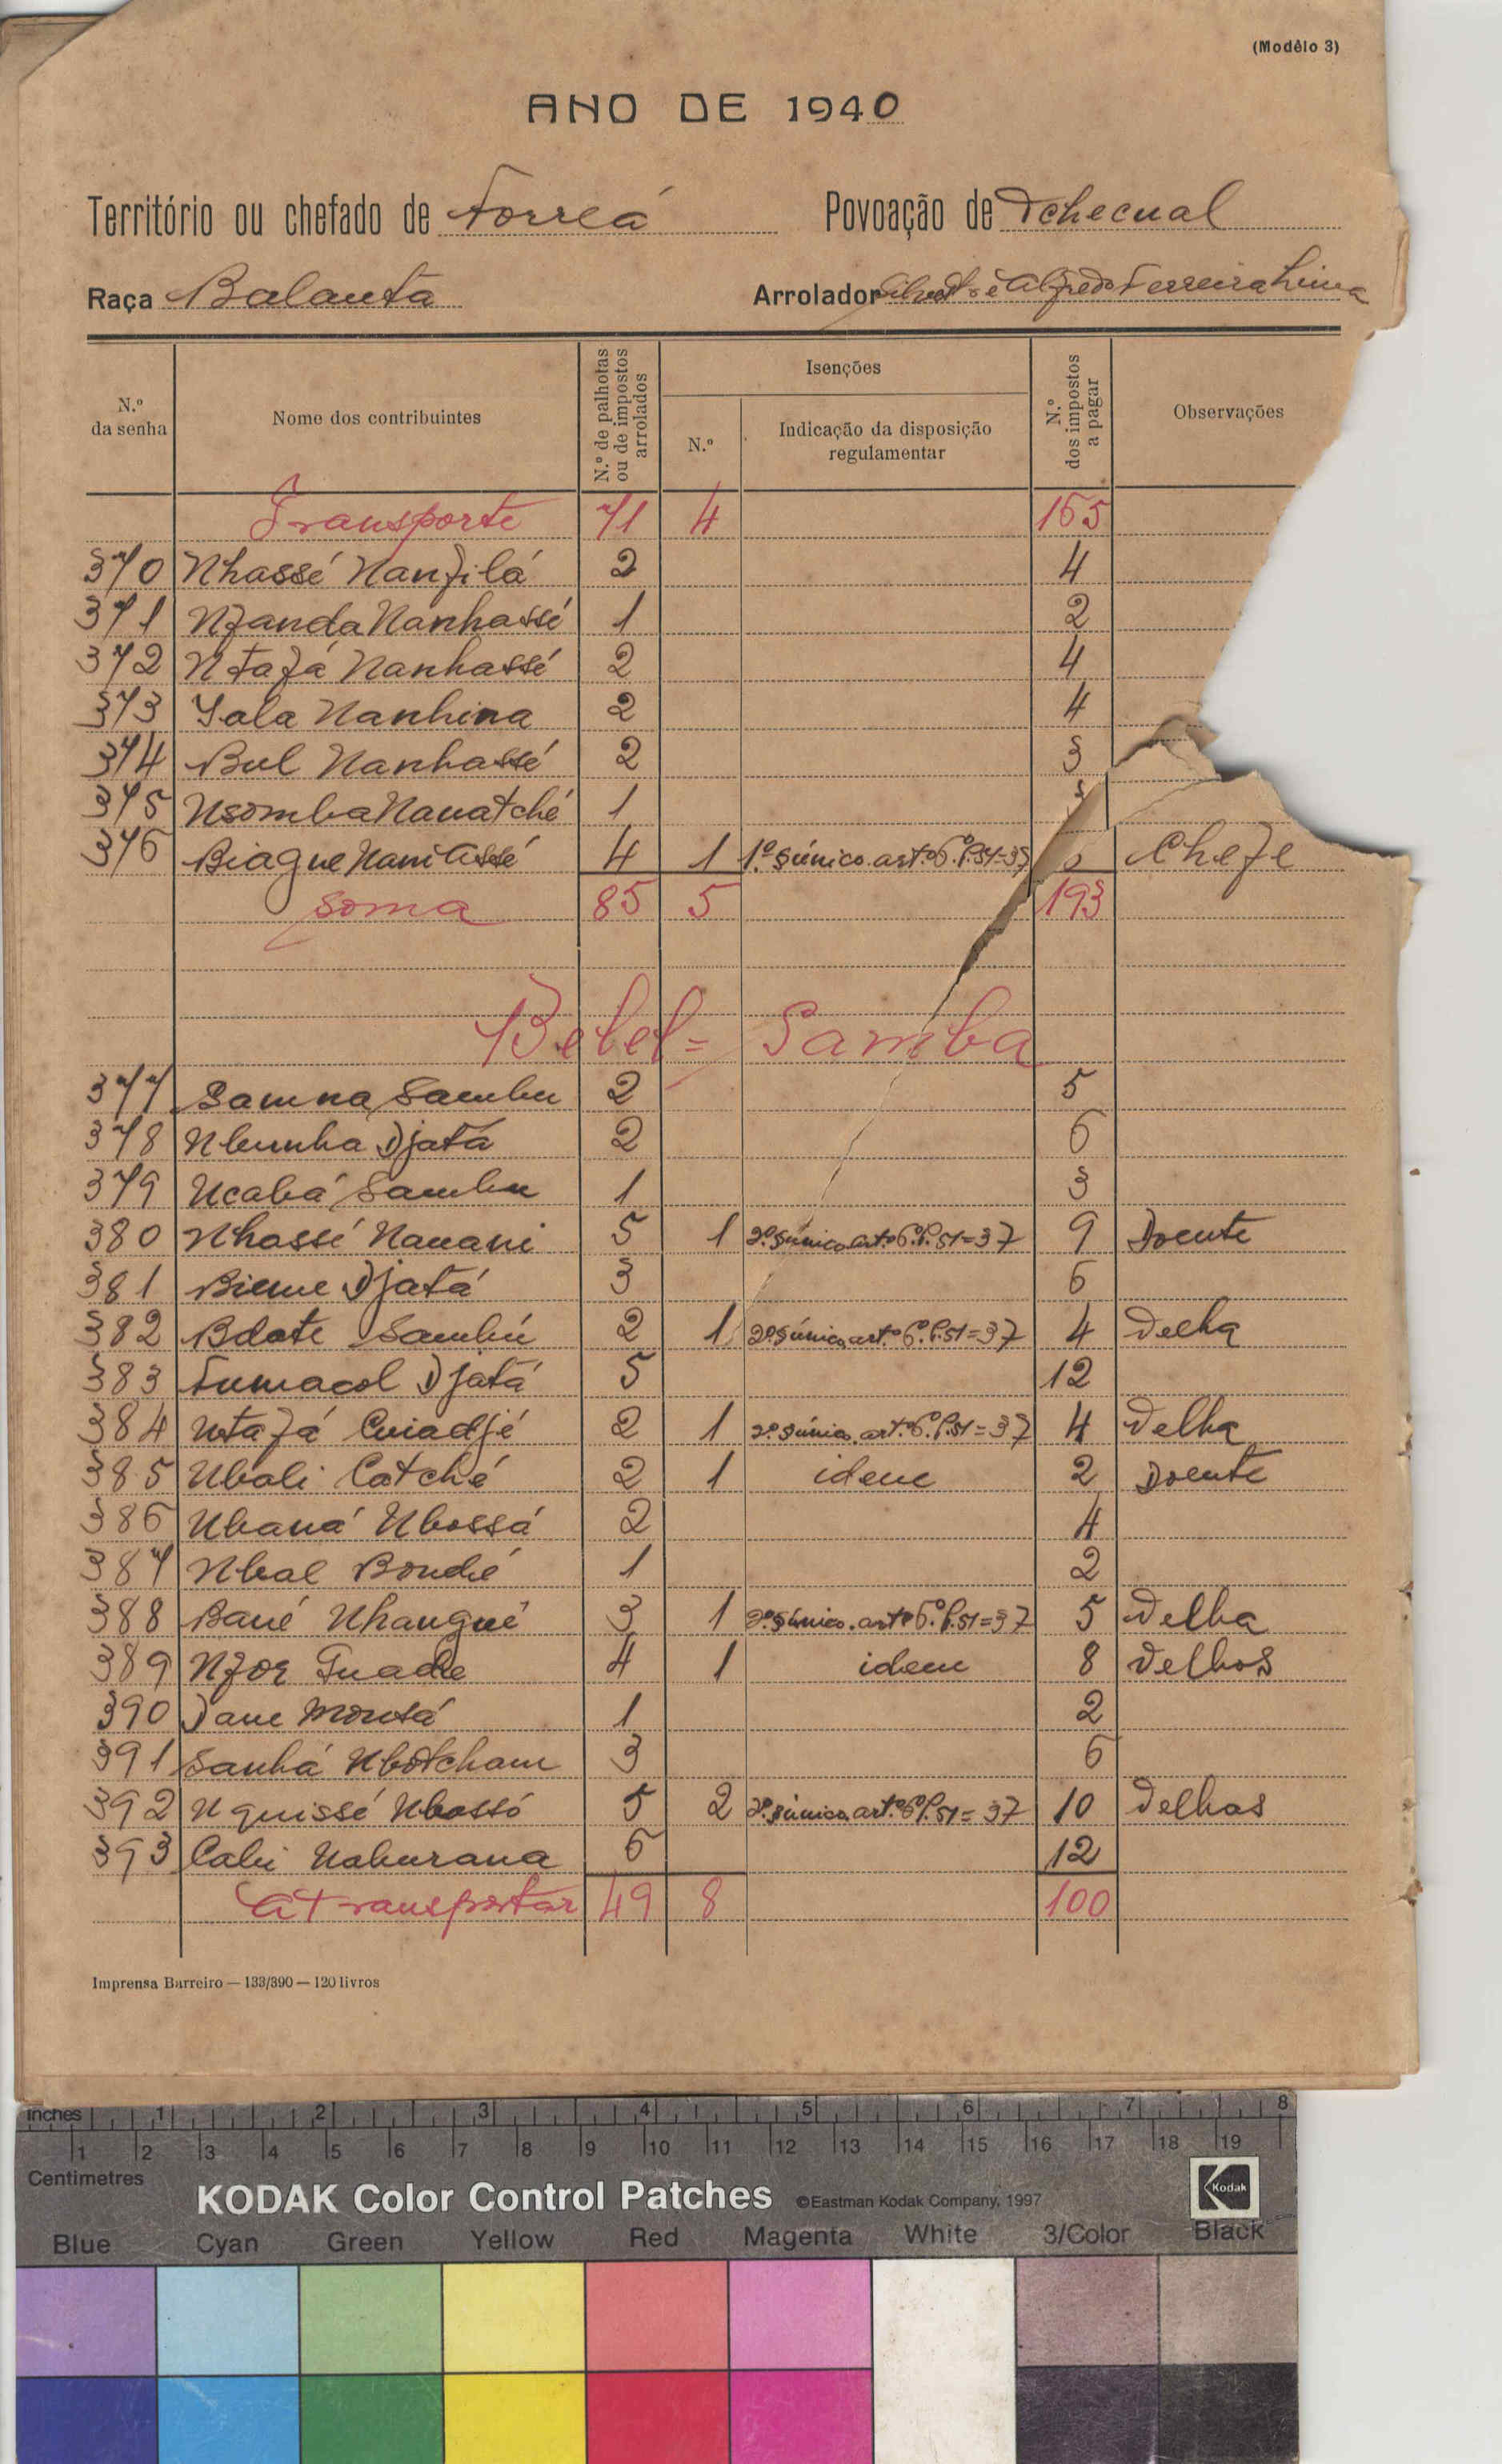 (Modêlo 3)
ANO DE 1940
Território ou chefado de Forreá Povoação de Tchecual
Raça Balanta Arrolador Alfredo Ferreira Lima
N.º da senha
Nome dos contribuintes
N.º de palhotas ou de impostos arrolados
Isenções
N.º
Indicação da disposição regulamentar
N.º dos impostos a pagar
Observações
Transporte 71 4 165
370 Nhassé Nanfilá 2 4
371 Nfanda Nanhassé 1 2
372 Ntafá Nanhassé 2 4
373 Yala Nanhina 2 4
374 Bul Nanhassé 2 3
375 Nsomba Nauatché 1
376 Biague 4 1 1º § único artº 6º P. 51=37 Chefe
Soma 85 5 193
Bebel = Samba
377 Samna Sambu 2 5
378 Nbunha Djatá 2 6
379 Ucabá Sambu 1 3
380 Nhassé Nauani 5 1 2º § único artº 6º P. 51=37 9 Doente
381 Bieme Djatá 3 6
382 Bdote Sambú 2 1 2º § único artº 6º P. 51=37 4 Velha
383 Fumacol Djatá 5 12
384 Ntafá Cuiadjé 2 1 2º § único artº 6º P. 51=37 4 Velha
385 Ubali Catché 2 1 idem 2 Doente
386 Ubaná Ubossá 2 4
387 Nbal Bondé 1 2
388 Bané Nhangué 3 1 2º § único artº 6º P. 51=37 5 Velha
389 Nfor 4 1 idem 8 Velhos
390 Dane Montá 1 2
391 Sanhá Nbotcham 3 6
392 Nquissé Nbossó 5 2 2º § único artº 6º P. 51=37 10 Velhas
393 Cabi Naburana 6 12
A transportar 49 8 100
Imprensa Barreiro — 133/390 — 120 livros
inches 1 2 3 4 5 6 7 8
1 2 3 4 5 6 7 8 9 10 11 12 13 14 15 16 17 18 19
Centimetres
KODAK Color Control Patches ©Eastman Kodak Company, 1997 Kodak
Blue Cyan Green Yellow Red Magenta White 3/Color Black